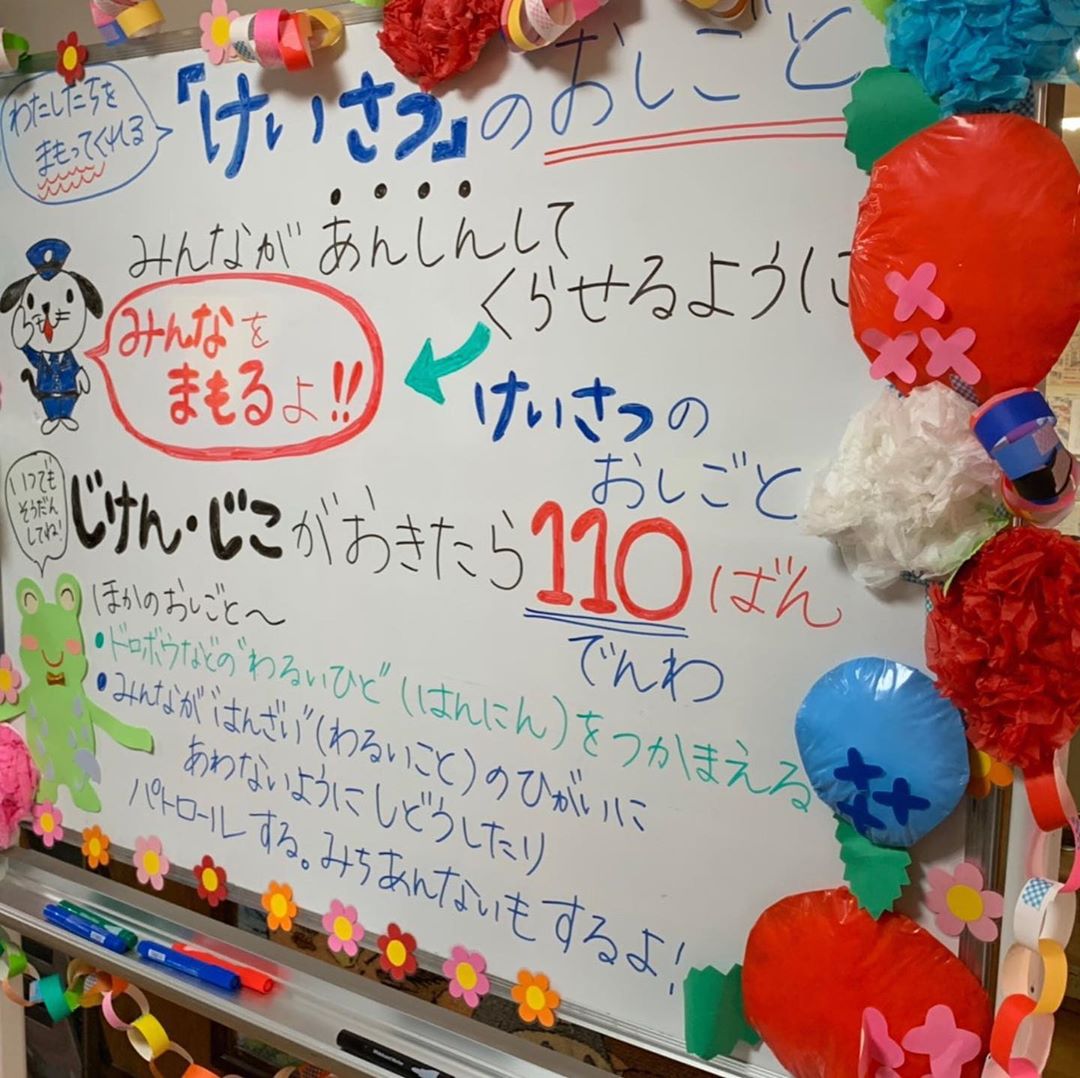 わたしたちを
まもってくれる
『けいさつ』のおしごと
みんなが あんしんして
くらせるように
みんなを
まもるよ!!
けいさつの
おしごと
いつでも
そうだん
してね!
じけん・じこがおきたら110ばん
でんわ
ほかのおしごと〜
•ドロボウなどの"わるいひと"(はんにん)をつかまえる
•みんなが"はんざい"(わるいこと)のひがいに
あわないようにしどうしたり
パトロールする。みちあんないもするよ!